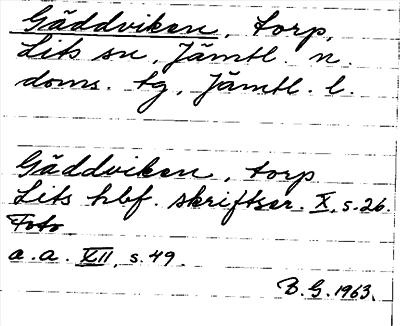 Gäddviken, torp,
Lits sn, Jämtl. n.
doms. tg, Jämtl. l.
Gäddviken, torp
Lits hbf. skriftser. X, s.26.
Foto
a.a. XII, s.49.
B.G. 1963.